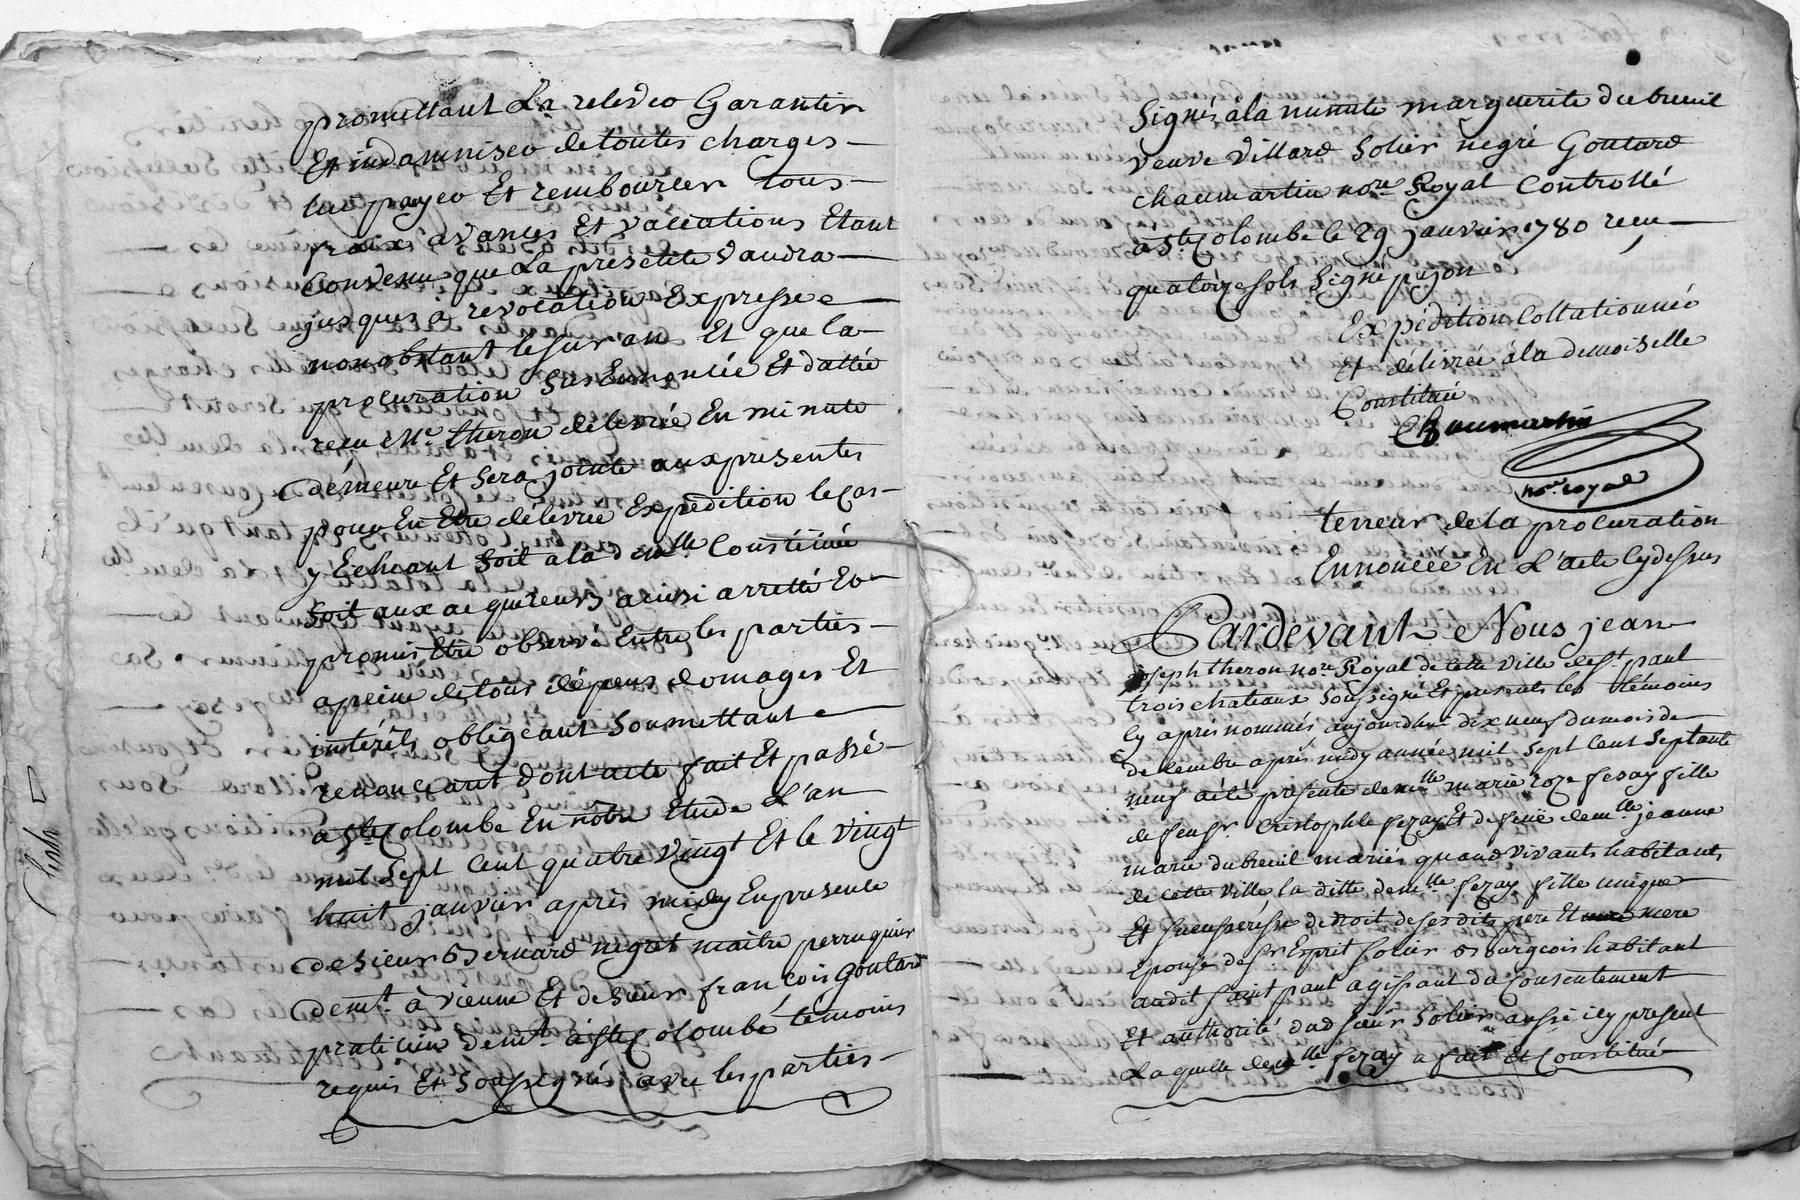 promettant La relever Garantir
Et indamniser de toutes charges
lui payer Et rembourcer tous
fraix avances Et vaccations Etant
Convenu que La presente vaudra
jusques à revocation Expresse
nonobstant le suran Et que la
procuration sus Ennoncée Et dattée
recu Me. theron delivrée En minute
demeure Et sera jointe aux presentes
pour En Etre délivrée Expedition le cas
y Echeant soit a la demlle Constituée
soit aux acquereurs ainsi arretté Et
promis Etre observé Entre les parties
a peine de tous dépens domages Et
intérêts obligeant soumettant
renonceant dont acte fait Et passé
a Ste Colombe En nôtre Etude L'an
mil sept Cent quatre vingt Et le vingt
huit janvier après midy En presence
de sieur Bernard negret maitre perruquier
demt. à vienne Et de sieur francois Goutard
praticien demt. a Ste Colombe témoins
requis Et soussignés avec les parties
Signés à la minute marguerite dubreuil
veuve Villard Solier negré Goutard
chaumartin nore Royal Controllé
a Ste Colombe le 29 janvier 1780 recu
quatorze sols Signé pejon
Expédition Collationnée
Et délivrée à la demoiselle
Constituée
Chaumartin
nore. royal
teneur de la procuration
Ennoncée En L'acte cy dessus
Pardevant Nous jean
joseph theron nore Royal de cette ville de St. paul
trois chateaux soussigné Et presents les témoins
cy après nommés aujourdhui dix neuf du mois de
decembre après midy année mil sept cent septante
neuf a été présente demlle marie roze fezay fille
de feu sr. Cristophle fezay Et de feue demlle jeanne
marie dubreuil mariés quand vivants habitants
de cette ville la ditte demlle fezay fille unique
Et heritiere de droit de ses dits pere Et mere
Epouse de sr Esprit Solier Bourgeois habitant
audit saint paul agissant du consentement
Et authorité dud sieur Solier aussi icy present
Laquelle demlle fezay a fait Et Constitué